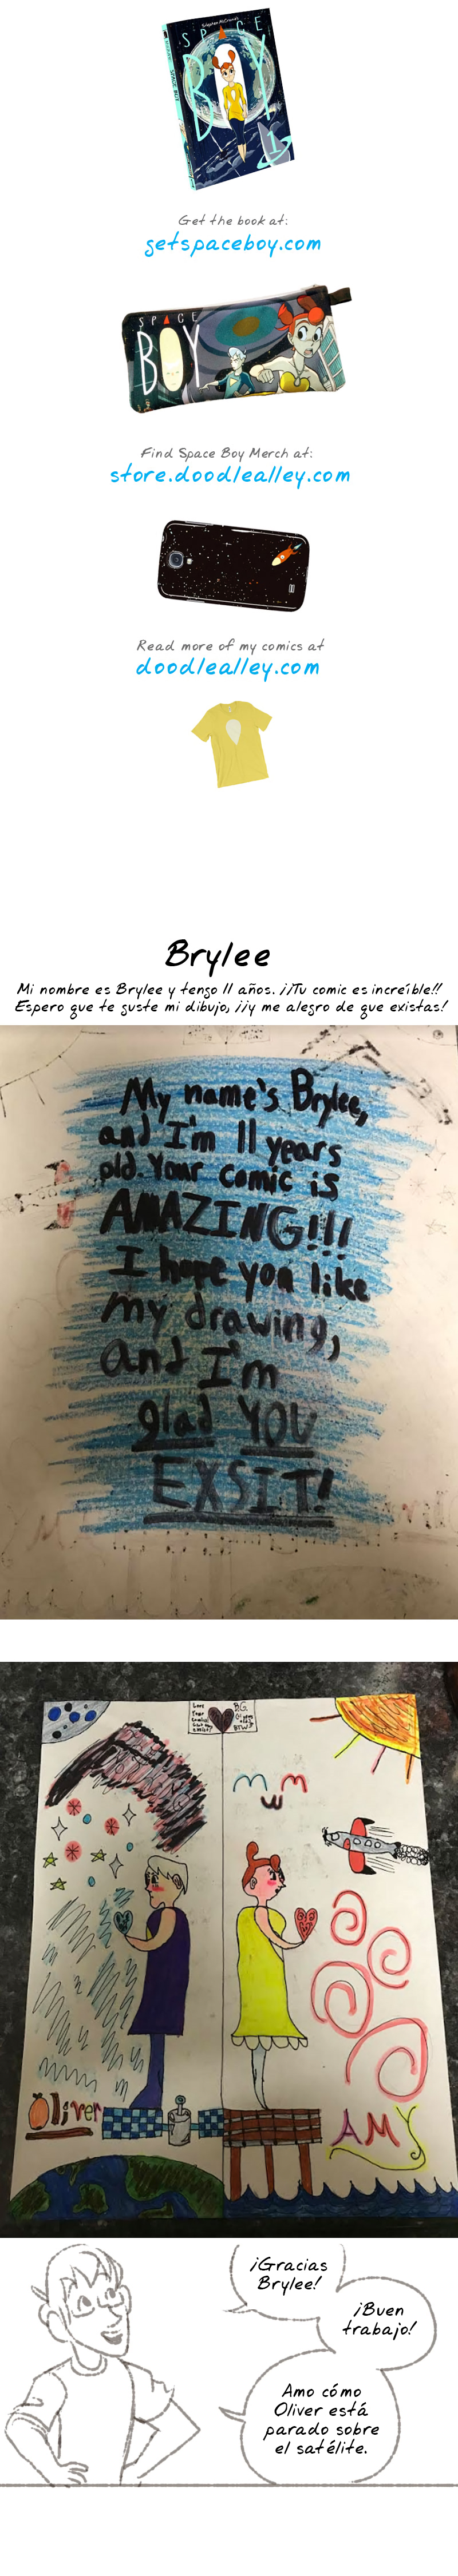 Stephen McCranie's
SPACE
BOY
SPACE BOY
1
Get the book at:
getspaceboy.com
SPACE
BOY
Find Space Boy Merch at:
store.doodlealley.com
Read more of my comics at
doodlealley.com
Brylee
Mi nombre es Brylee y tengo 11 años. ¡¡Tu comic es increíble!!
Espero que te guste mi dibujo, ¡¡y me alegro de que existas!
My name's Brylee,
and I'm 11 years
old. Your comic is
AMAZING!!!
I hope you like
my drawing,
and I'm
glad YOU
EXSIT!
B.G.
BTW
Oliver
AMY
¡Gracias
Brylee!
¡Buen
trabajo!
Amo cómo
Oliver está
parado sobre
el satélite.